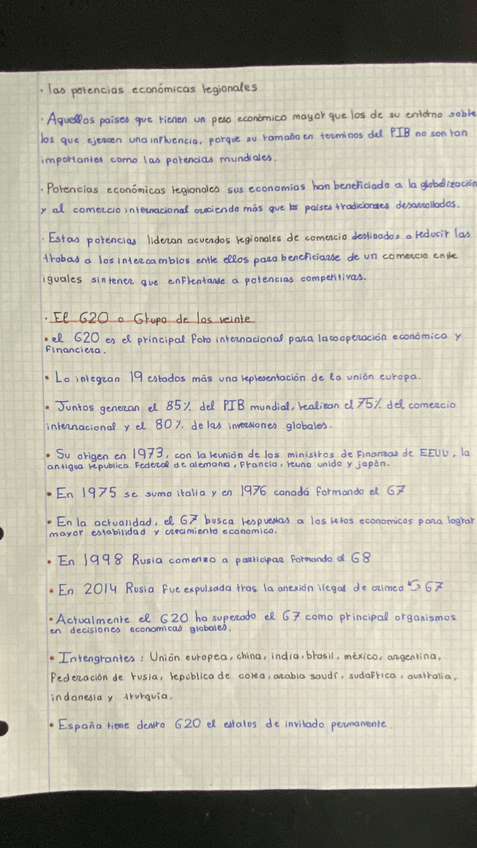 · las potencias económicas regionales
· Aquellos países que tienen un peso económico mayor que los de su entorno sobre
los que ejercen una influencia, porque su tamaño en terminos del PIB no son tan
importantes como las potencias mundiales.
· Potencias económicas regionales sus economías han beneficiado a la globalización
y al comercio internacional creciendo más que los países tradicionales desarrollados.
· Estas potencias lideran acuerdos regionales de comercio destinados a reducir las
trabas a los intercambios entre ellos para beneficiarse de un comercio entre
iguales sin tener que enfrentarse a potencias competitivas.
· El G20 o Grupo de los veinte
• el G20 es el principal foro internacional para la cooperación económica y
financiera.
• Lo integran 19 estados más una representación de la unión europa.
• Juntos generan el 85% del PIB mundial, realizan el 75% del comercio
internacional y el 80% de las inversiones globales.
• Su origen en 1973, con la reunión de los ministros de Finanzas de EEUU, la
antigua republica Federal de alemania, Francia, reino unido y japón.
• En 1975 se sumo italia y en 1976 canadá formando el G7
• En la actualidad, el G7 busca respuestas a los retos economicos para lograr
mayor estabilidad y crecimiento economico.
• En 1998 Rusia comenzo a participar formando el G8
• En 2014 Rusia fue expulsada tras la anexión ilegal de crimea G7
• Actualmente el G20 ha superado el G7 como principal organismos
en decisiones economicas globales.
• Intengrantes : Unión europea, china, india, brasil, méxico, argentina,
Federación de rusia, república de corea, arabia saudí, sudafrica, australia,
indonesia y turquia.
• España tiene dentro G20 el estatos de invitado permanente.